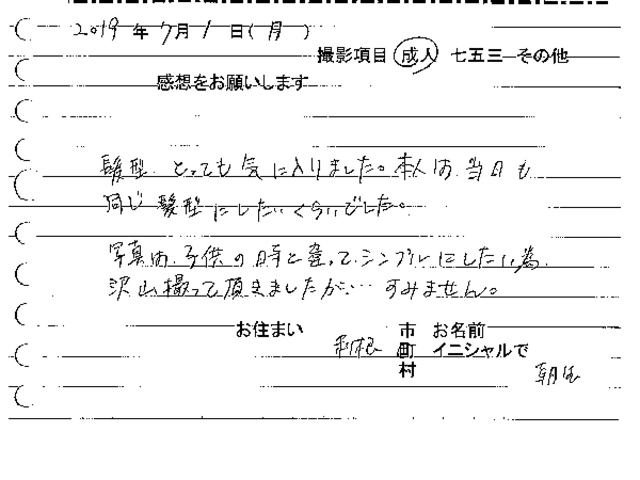 2019年7月1日(月)
撮影項目 成人 七五三 その他
感想をお願いします
髪型、とっても気に入りました。本人は、当日も
同じ髪型にしたいくらいでした。
写真は、子供の時と違って、シンプルにしたい為、
沢山撮って頂きましたが… すみません。
お住まい 利根 市町村 お名前 イニシャルで